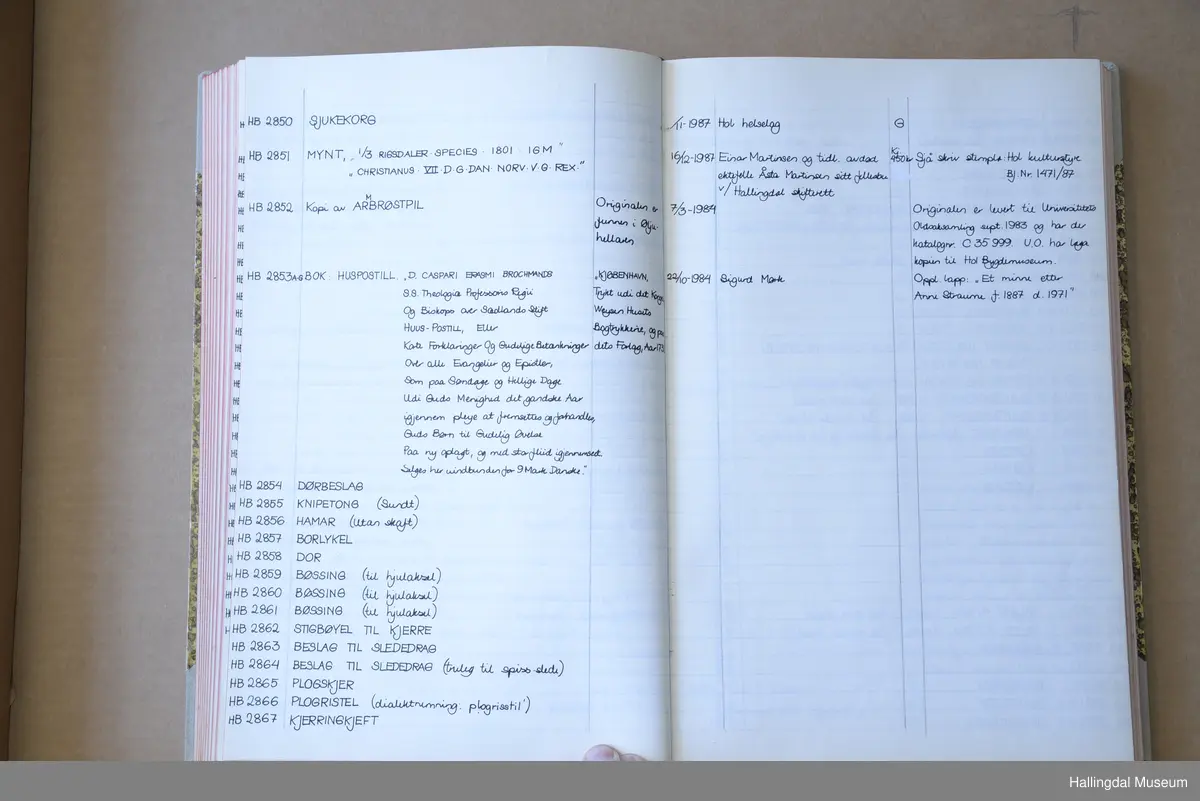 HB 2850 SJUKEKORG /11-1987 Hol helselag G
HB 2851 MYNT, „ 1/3 RIGSDALER · SPECIES · 1801 · IGM " 16/12-1987 Einar Martinsen og tidl. avdød Kj. 450 kr Sjå skriv stempla: Hol kulturstyre
„ CHRISTIANUS · VII · D · G · DAN · NORV · V · G · REX · " ektefelle Åsta Martinsen sitt fellesbu Bj. Nr. 1471/87
v/ Hallingdal skifterett
HB 2852 Kopi av ARMBRØSTPIL Originalen er 7/3-1984 Originalen er levert til Universitetets
funnen i Olsagsamling sept. 1983 og har der
hellaren katalognr. C 35999. U.O. har laga
kopien til Hol Bygdemuseum.
HB 2853A-G BOK: HUSPOSTILL. „D. CASPARI ERASMI BROCHMANDS „KJØBENHAVN, 22/10-1984 Sigurd Mørk Oppl. lapp: „Et minne etter
S.S. Theologia Professoris Trykt udi det Kongl. Anne Straume f. 1887 d. 1971"
Og Biskops over Sædlands Stift Weysen Husets
HUUS-POSTILL, Eller Bogtrykkerie, og paa
Korte Forklaringer Og Gudelige Betænkninger dets Forlag, Aar 17
Over alle Evangelier og Epistler,
Som paa Søndage og Hellige Dage
Udi Guds Menighed det gandske Aar
igjennem pleye at fremsettes og forhandles,
Guds Børn til Gudelig Øvelse
Paa ny oplagt, og med stor fliid igjennemseet.
Selges her uindbunden for 9 Mark Danske."
HB 2854 DØRBESLAG
HB 2855 KNIPETONG (Sundt)
HB 2856 HAMAR (Utan skaft)
HB 2857 BORLYKEL
HB 2858 DOR
HB 2859 BØSSING (til hjulaksel)
HB 2860 BØSSING (til hjulaksel)
HB 2861 BØSSING (til hjulaksel)
HB 2862 STIGBØYEL TIL KJERRE
HB 2863 BESLAG TIL SLEDEDRAG
HB 2864 BESLAG TIL SLEDEDRAG (truleg til spiss-slede)
HB 2865 PLOGSKJER
HB 2866 PLOGRISTEL (dialektnemning: ‚plogrisstil')
HB 2867 KJERRINGKJEFT
Hallingdal Museum